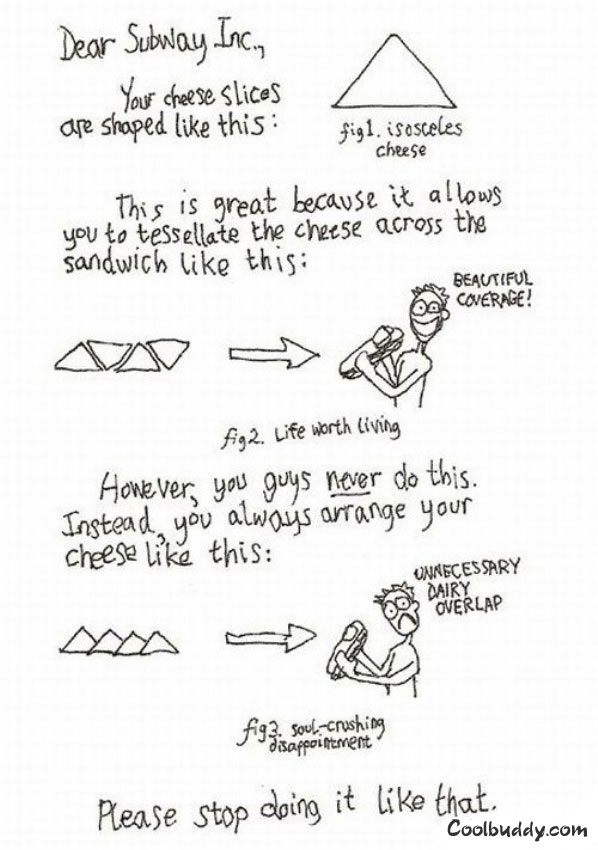 Dear Subway Inc.,
Your cheese slices
are shaped like this:
fig1. isosceles
cheese
This is great because it allows
you to tessellate the cheese across the
sandwich like this:
BEAUTIFUL
COVERAGE!
fig2. Life worth living
However, you guys never do this.
Instead, you always arrange your
cheese like this:
UNNECESSARY
DAIRY
OVERLAP
fig3. soul-crushing
disappointment
Please stop doing it like that.
Coolbuddy.com